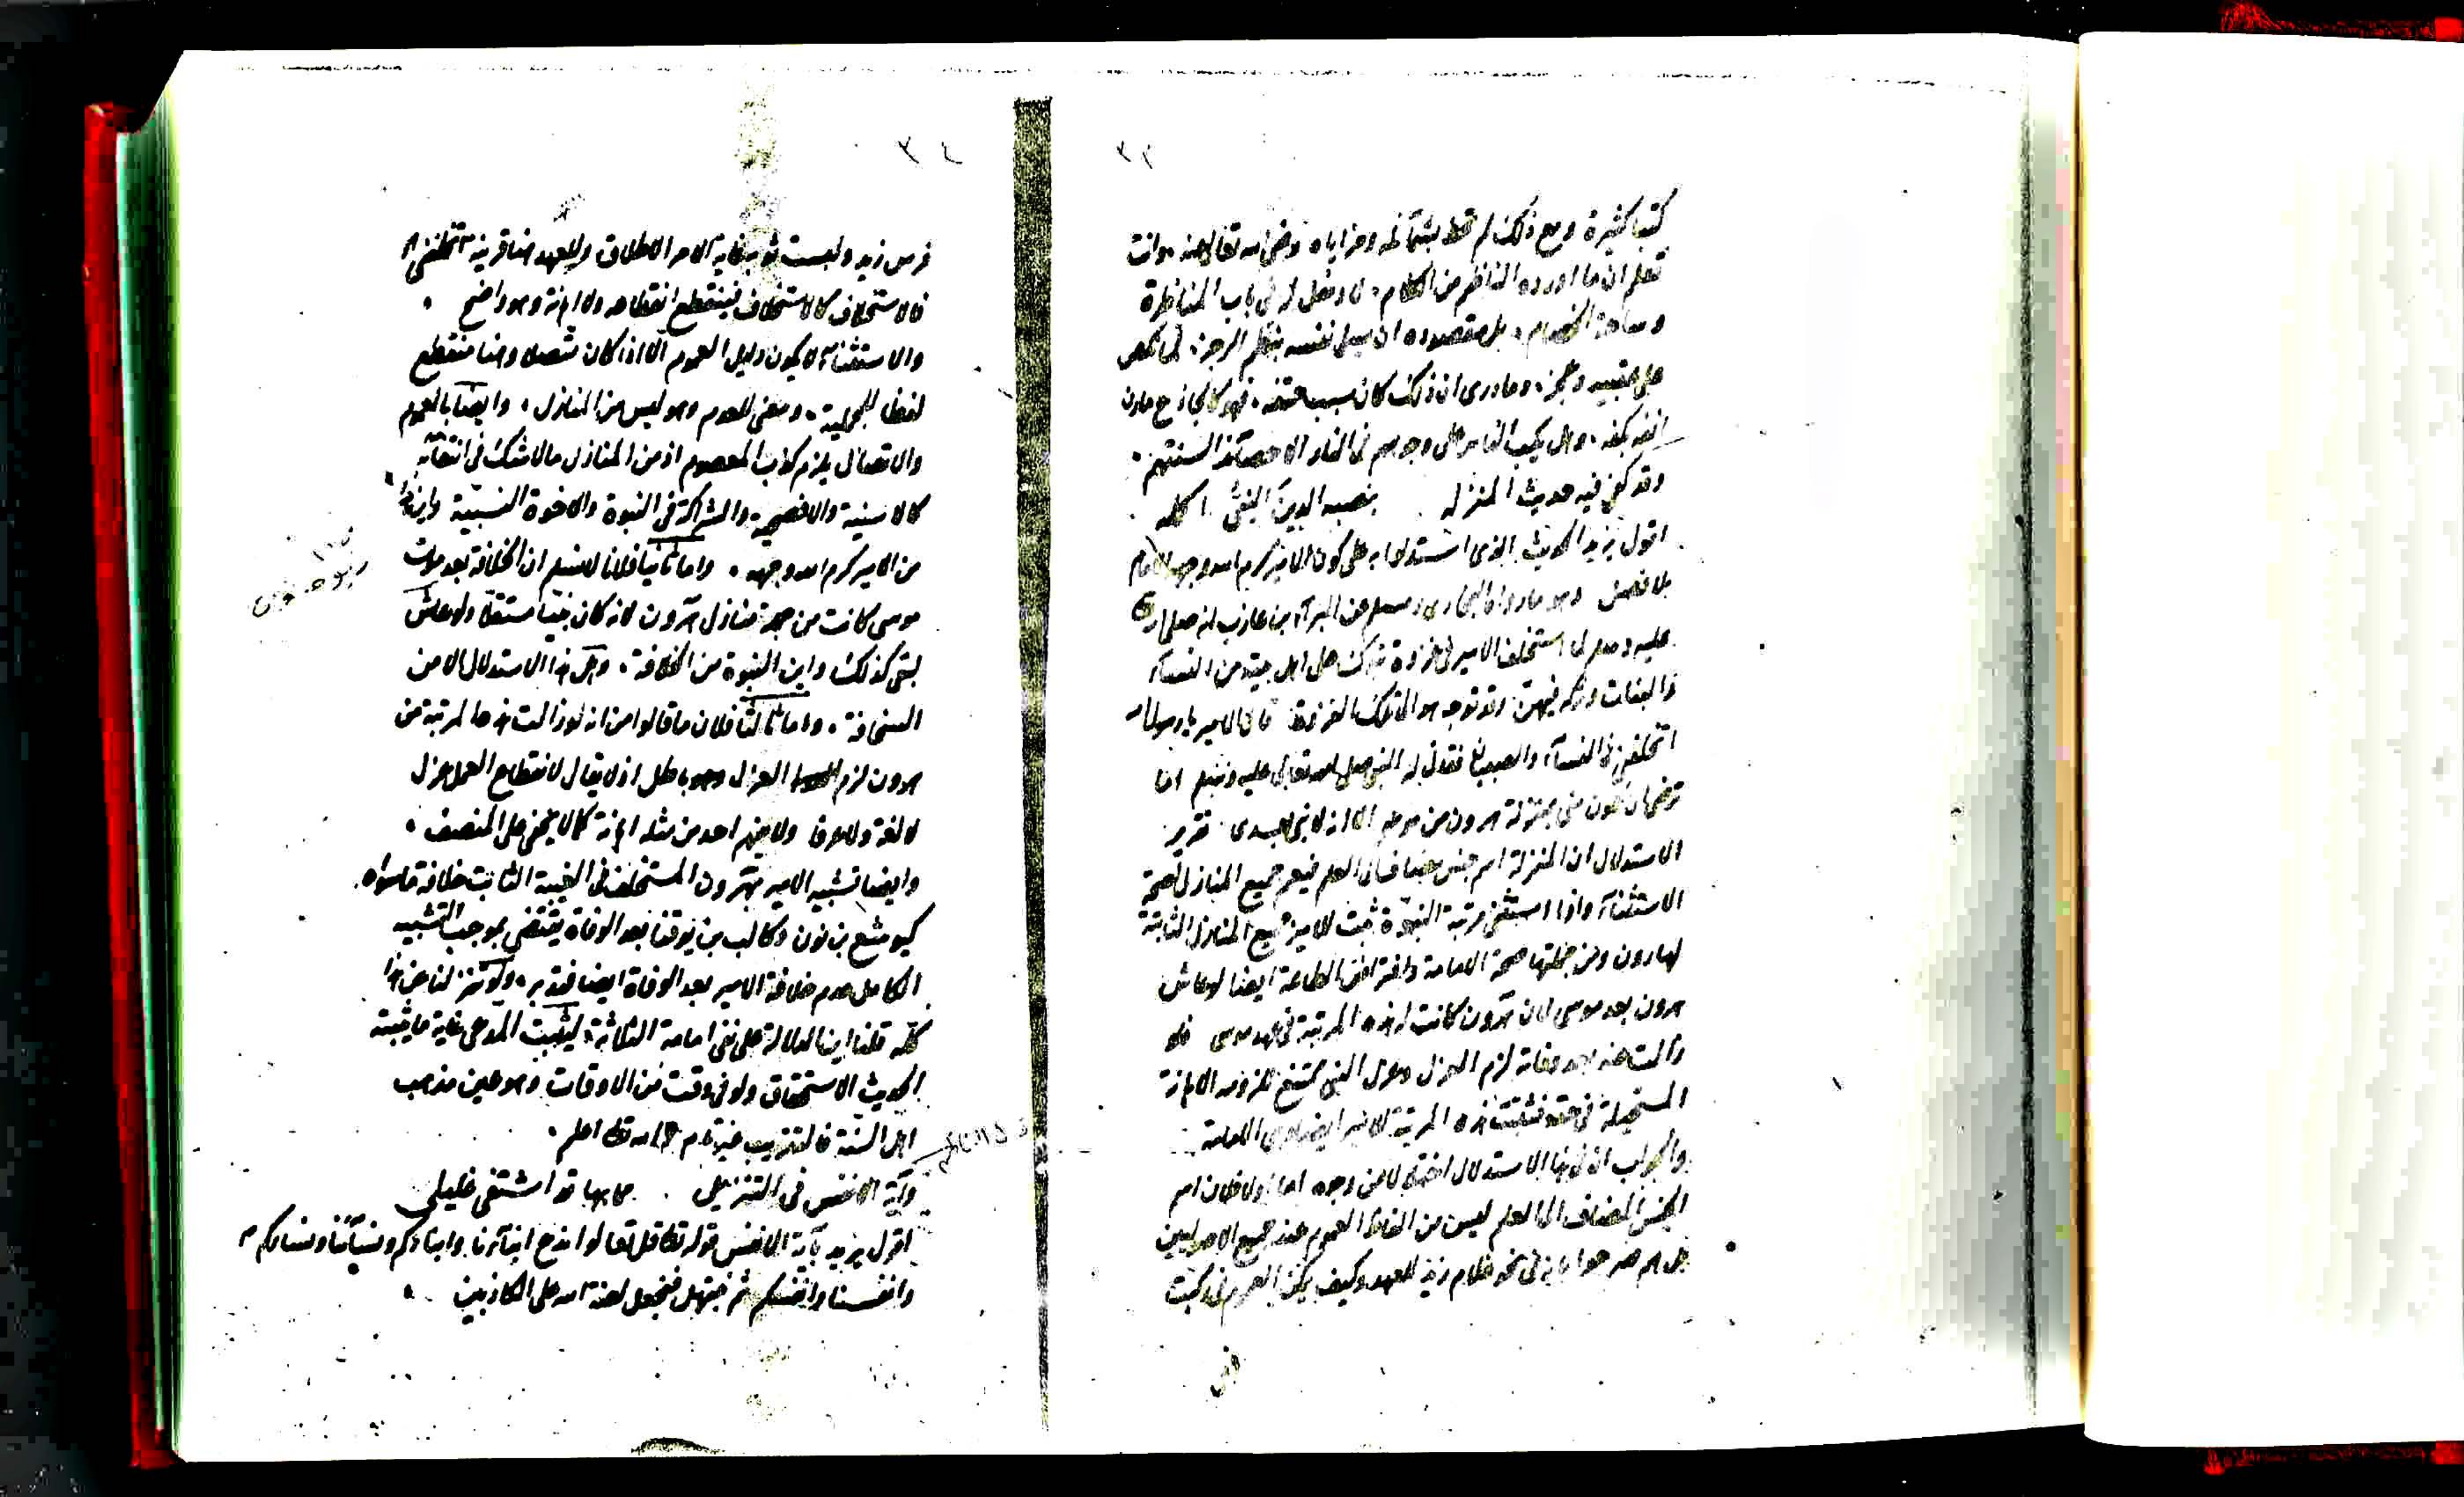 ٣٣
كتبا كثيرة ومع ذلك لم تحط بشمائله ومزاياه رضي الله تعالى عنه وانت
تعلم ان ما اورده الناظم من الكلام لا دخل له في باب المناظرة
وساحة الخصام بل مقصوده ان يسلي نفسه بنظم الرجز
على عقبيه وعجز وما درى ان ذلك كان سبب حتفه فهو كالجادع مارن
انفه بكفه وهل يكب الناس على وجوههم في النار الا حصائد السنتهم
وقد كفى فيه حديث المنزله بنصبه الدين النبي اكمله
اقول يريد الحديث الذي استدلوا به على كون الامير كرم الله وجهه الامام
بلا فصل وهو ما رواه البخاري ومسلم عن البرآء بن عازب انه صلى الله
عليه وسلم لما استخلف الامير في غزوة تبوك على اهل بيته من النسآء
والبنات وتركه فيهن وقد توجه هو الى تلك الغزوة قال الامير يا رسول الله
اتخلفني في النسآء والصبيان فقال له النبي صلى الله تعالى عليه وسلم اما
ترضى ان تكون مني بمنزلة هرون من موسى الا انه لا نبي بعدي تقرير
الاستدلال ان المنزلة اسم جنس مضاف الى العلم فيعم جميع المنازل لصحة
الاستثنآء واذا استثنى مرتبة النبوة ثبت للامير جميع المنازل الثابتة
لهارون ومن جملتها صحة الامامة وافتراض الطاعة ايضا لو عاش
هرون بعد موسى لان هرون كانت له هذه المرتبة في عهد موسى فلو
زالت عنه بعد وفاته لزم العزل وعزل النبي ممتنع للزومه الاهانة
المستحيلة في حقه فثبتت هذه المرتبة للامير ايضا وهي الامامة
والجواب ان في هذا الاستدلال اختلالا من وجوه اما اولا فلان اسم
الجنس المضاف الى العلم ليس من الفاظ العموم عند جميع الاصوليين
بل هم صرحوا بانه في نحو غلام زيد للعهد وكيف يمكن العموم في ركبت
٣٤
فرس زيد ولبست ثوبه غاية الامر الاطلاق وللعهد هنا قرينة اتخلفني
فالاستخلاف كالاستخلاف فينقطع انقطاعه ولا اهانة وهو واضح
والاستثنآء لا يكون دليل العموم الا اذا كان متصلا وهنا منقطع
لفظا للجملية ومعنى للعدم وهو ليس من المنازل وايضا بالعموم
والاتصال يلزم كذب المعصوم اذ من المنازل ما لا شك في انتفائه
كالاسنية والافصحية والمشاركة في النبوة والاخوة النسبية واين هذا
من الامير كرم الله وجهه واما ثانيا فلانا لا نسلم ان الخلافة بعد موت
موسى كانت من جملة منازل هرون لانه كان نبيا مستقلا ولو عاش
لبقى كذلك واين النبوة من الخلافة وهل هذا الاستدلال الا من
السخافة واما ثالثا فلان ما قالوا من انه لو زالت هذه المرتبة من
هرون لزم العزل وهو باطل اذ لا يقال لانقطاع العمل عزل
لا لغة ولا عرفا ولا يفهم احد من مثله اهانة كما لا يخفى على المنصف
وايضا تشبيه الامير بهرون المستخلف في الغيبة الثابت خلافة ما سواه
كيوشع بن نون وكالب بن يوقنا بعد الوفاة يقتضي بموجب التشبيه
الكامل عدم خلافة الامير بعد الوفاة ايضا فتدبر ولو تنزلنا عن هذا
كله قلنا اين الدلالة على نفي امامة الثلاثة ليثبت المدعى غاية ما يثبته
الحديث الاستحقاق ولو في وقت من الاوقات وهو عين مذهب
اهل السنة فالتقريب غير تام والله تعالى اعلم
وآية الانفس في التنزيل بها قد اشتفى غليلي
اقول يريد بآية الانفس قوله تعالى قل تعالوا ندع ابنآءنا وابنآءكم ونسآءنا ونسآءكم
وانفسنا وانفسكم ثم نبتهل فنجعل لعنة الله على الكاذبين